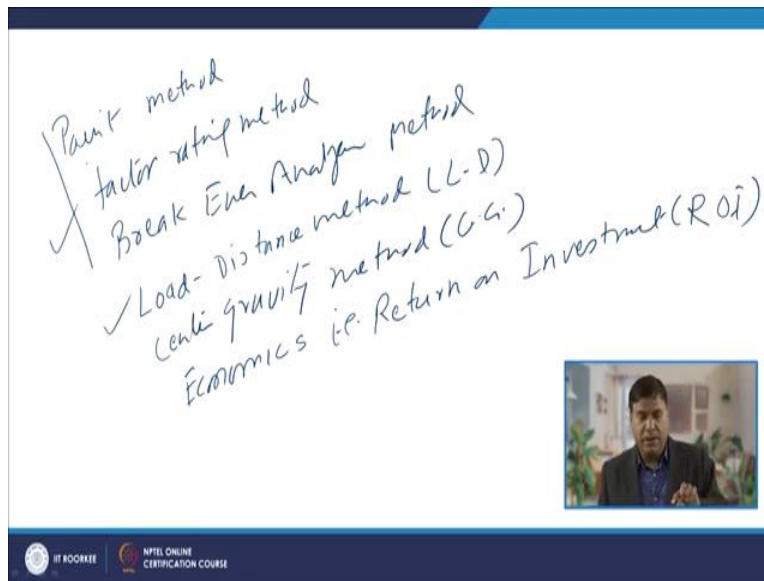 Point method
factor rating method
Break Even Analysis method
Load-Distance method (L-D)
Center gravity method (C.G.)
Economics i.e. Return on Investment (ROI)
IT ROORKEE
NPTEL ONLINE
CERTIFICATION COURSE